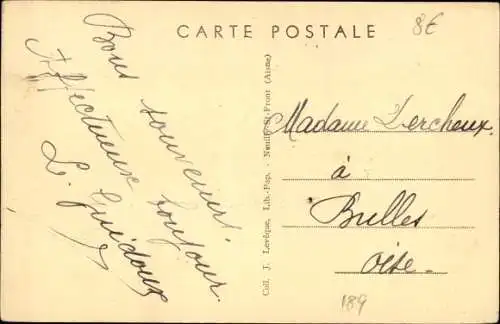 CARTE POSTALE
8€
Bons souvenirs.
Affectueux bonjour.
L. Guidoux
Coll. J. Levêque, Lib.-Pap. - Neuilly-St-Front (Aisne)
Madame Lercheux.
à
Bulles
Oise.
189